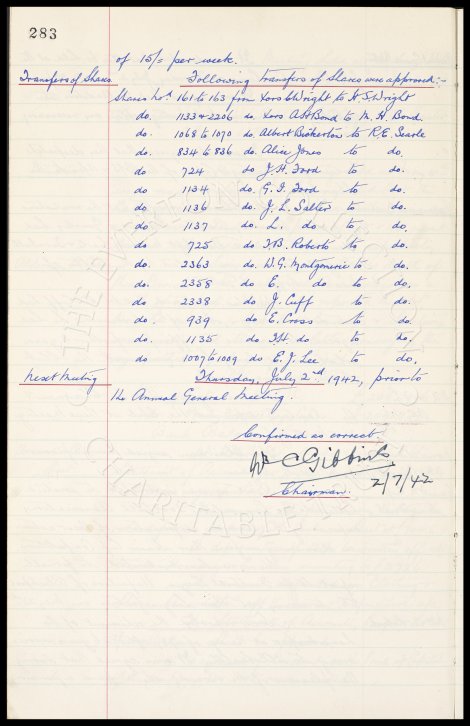 283
of 15/- per week.
Transfers of Shares Following transfers of Shares were approved:-
Shares No.s 161 to 163 from Exors C Wright to H. S. Wright
do. 1133 & 2206 do. Exors A H Bond to M. H. Bond.
do. 1068 to 1070 do. Albert Bickerton to R E Searle
do. 834 to 836 do. Alice Jones to do.
do 724 do J. H. Ford to do.
do 1134 do. G. I. Ford to do.
do 1136 do. J. L. Salter to do.
do 1137 do. L. do to do.
do 725 do I. B. Roberts to do.
do. 2363 do. W. G. Montgomerie to do.
do 2358 do E. do to do.
do 2338 do J. Cuff to do.
do. 939 do E. Cross to do.
do. 1135 do do to do.
do 1007 to 1009 do E. J. Lee to do.
Next Meeting Thursday, July 2nd 1942, prior to
the Annual General Meeting.
Confirmed as correct.
Wm C Gibbins
Chairman. 2/7/42
THE EVERTON COLLECTION
CHARITABLE TRUST